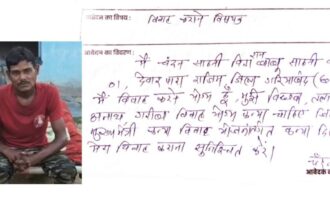 आवेदन का विषय: विवाह कराने विषयक
आवेदन का विवरण:
मैं चंदन साहनी पिता
01, दिवार पारा राजिम, जिला गरियाबंद
मैं विवाह करने योग्य हूँ, मुझे विधवा, तलाक
अनाथ गरीब विवाह योग्य कन्या चाहिए
मुख्यमंत्री कन्या विवाह योजनांतर्गत कन्या
मेरा विवाह कराना सुनिश्चित करें।
आवेदक के